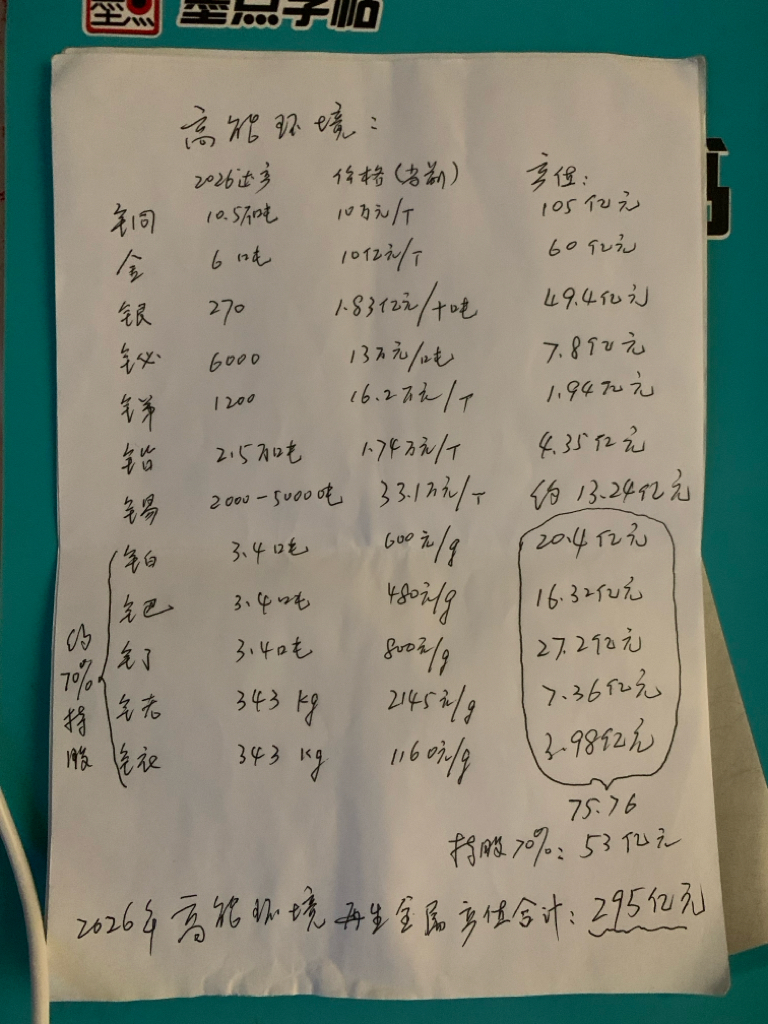 墨点 墨点字帖
高能环境：
2026达产 价格(当前) 产值：
铜 10.5万吨 10万元/T 105亿元
金 6吨 10亿元/T 60亿元
银 270 1.83亿元/十吨 49.4亿元
铋 6000 13万元/吨 7.8亿元
锑 1200 16.2万元/T 1.94亿元
锴 2.5万吨 1.74万元/T 4.35亿元
锡 2000-5000吨 33.1万元/T 约13.24亿元
铂 3.4吨 600元/g 20.4亿元
钯 3.4吨 480元/g 16.32亿元
钌 3.4吨 800元/g 27.2亿元
铑 343kg 2145元/g 7.36亿元
铱 343kg 1160元/g 3.98亿元
约70%持股
75.76
持股70%：53亿元
2026年高能环境再生金属产值合计：295亿元